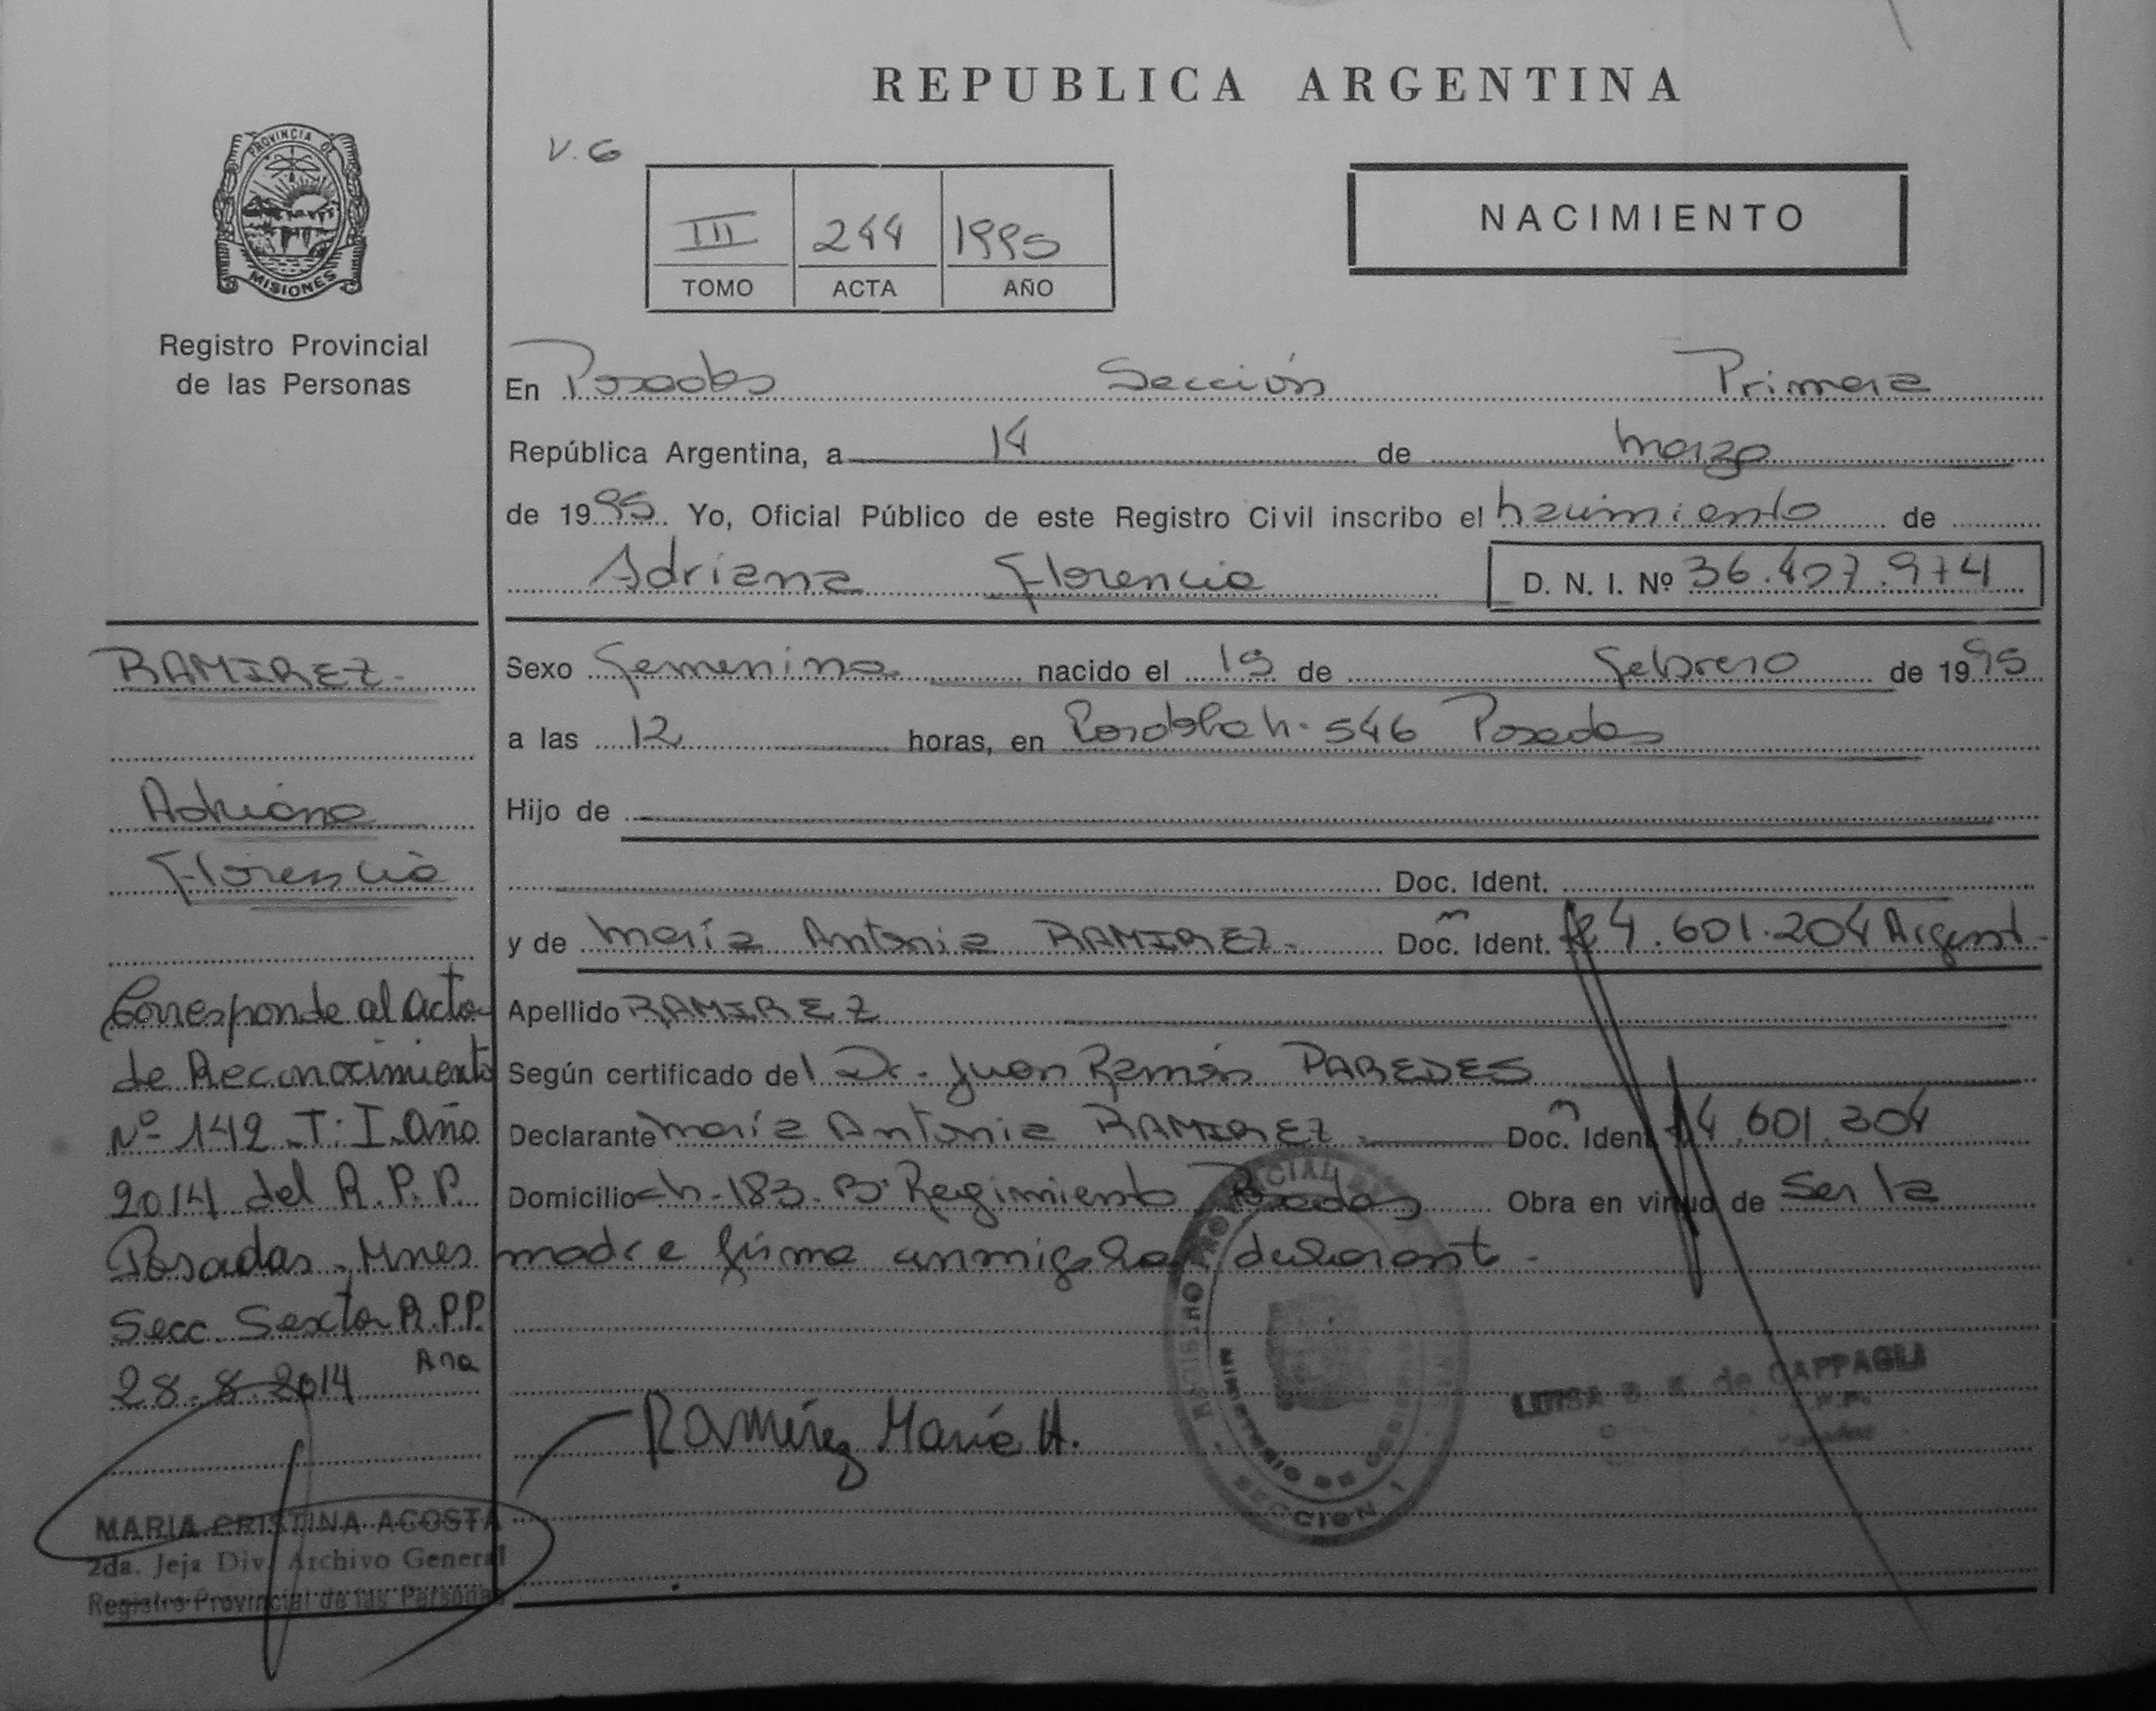 REPUBLICA ARGENTINA
PROVINCIA DE
MISIONES
Registro Provincial
de las Personas
V. G
III 244 1995
TOMO ACTA AÑO
NACIMIENTO
En Posadas Sección Primera
República Argentina, a 14 de Marzo
de 1995 Yo, Oficial Público de este Registro Civil inscribo el nacimiento de
Adriana Florencia D. N. I. Nº 36.407.974
Sexo Femenino nacido el 19 de Febrero de 1995
a las 12 horas, en h. 546 Posadas
Hijo de
Doc. Ident.
y de María Antonia RAMIREZ Doc. Ident. 4.601.204 Argent.
Apellido RAMIREZ
Según certificado del Dr. Juan Ramón PAREDES
Declarante María Antonia RAMIREZ Doc. Ident. 14.601.204
Domicilio Ch. 183. Bº Regimiento Posadas Obra en virtud de Ser la
madre firma conmigo la
Ramírez María A.
RAMIREZ
Adriana
Florencia
Corresponde al acta
de Reconocimiento
Nº 142 T: I Año
2014 del R.P.P.
Posadas. Mnes
Secc. Sexta R.P.P.
28.8.2014 Ana
MARIA CRISTINA ACOSTA
2da. Jefa Div. Archivo General
Registro Provincial de las Personas
REGISTRO PROVINCIAL
MINISTERIO DE GOBIERNO
SECCION 1
LUISA de CAPPAGLI